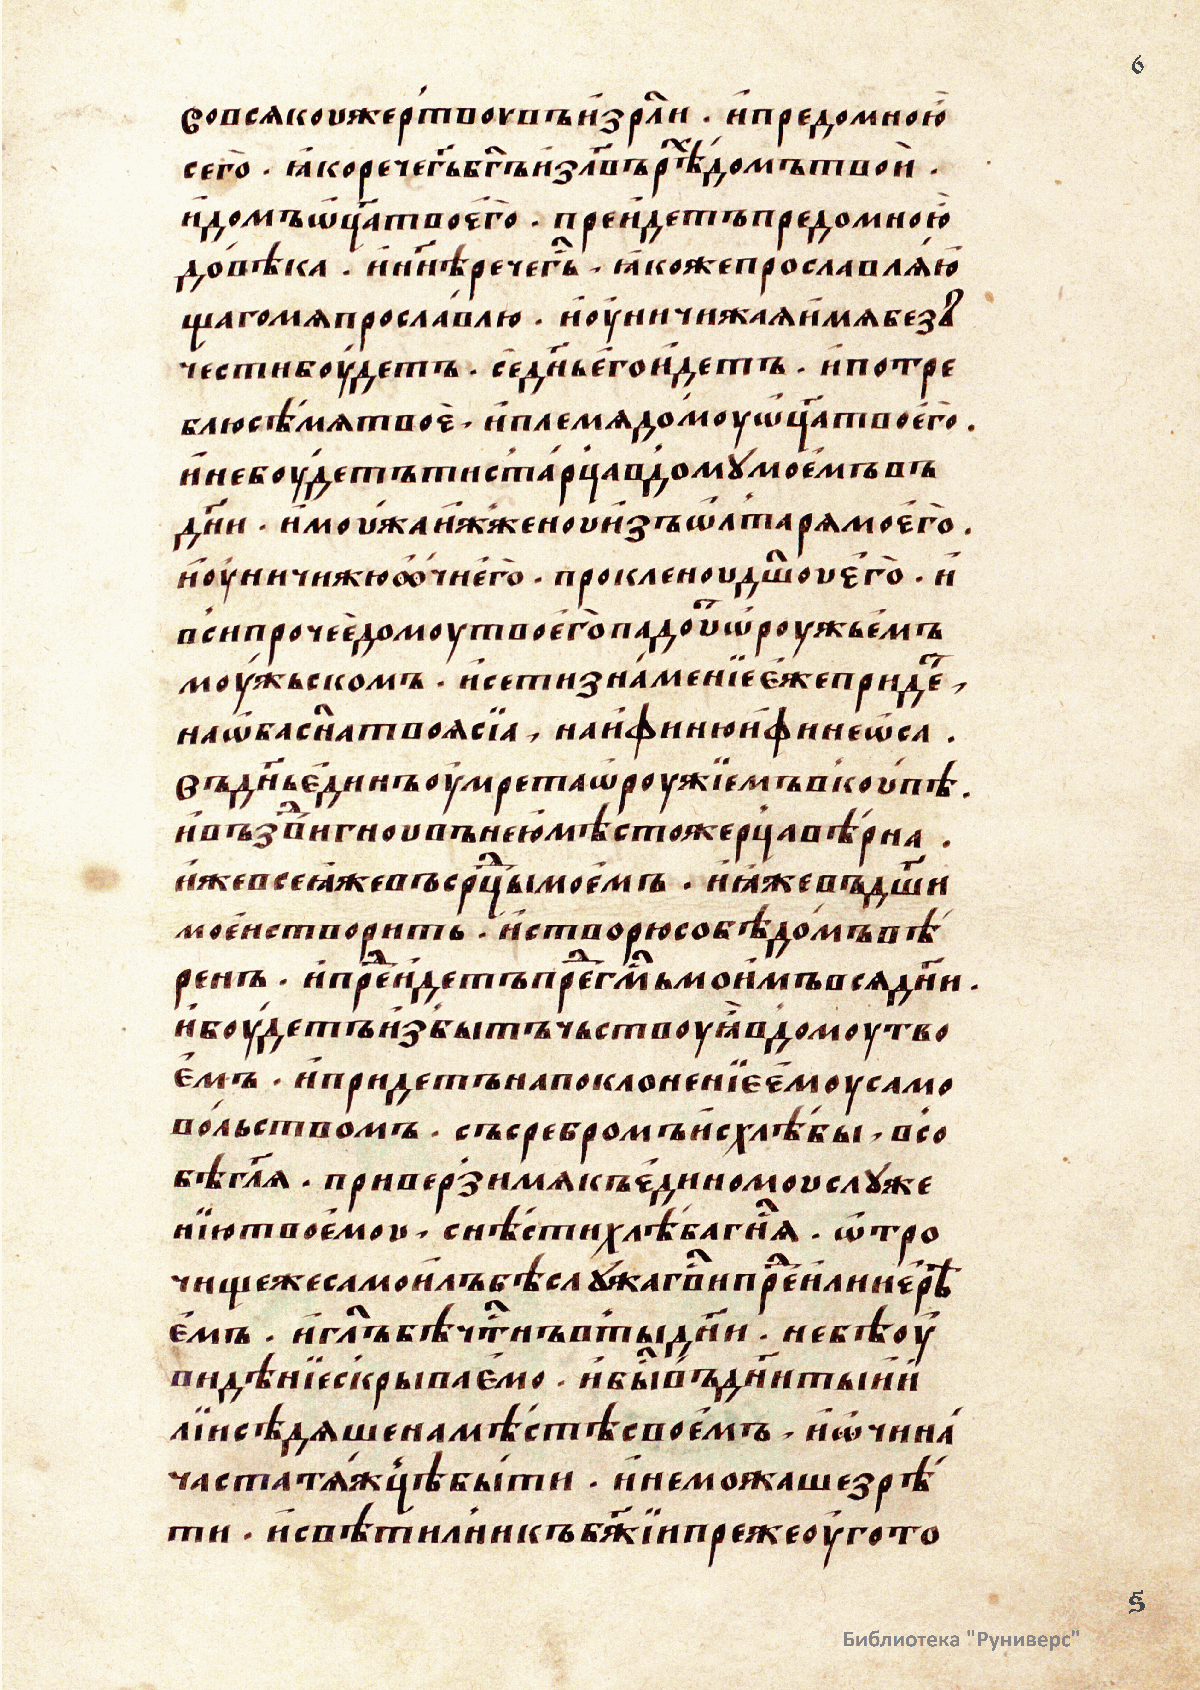 6
воєвсякоижертвоувъизрл҃и . ипредомною
сего . ꙗкоречегь҃бг҃ъизл҃върѣ́хдомътвои .
идомъѡц҃атвоего . преидетъпредомною
довѣка . инн҃ѣречегь҃ . ꙗкожепрославляю
щагомяпрославлю . иоуничижаяимябезъ
честибоудетъ . седн҃ьегоидетъ . ипотре
блюсѣмятвоє . иплемядомоуѡц҃атвоего .
инебоудетътистарцавдомꙋмоемъвъ
дн҃и . имоужаижженоиизъѡлтарямоєго .
иоуничижюꙭчиего . прокленоудш҃оуєго . и
всипрочеедомоутвоегопадоутѡроужьемъ
моужьскомъ . исетизнаменїеєжепридет ,
наѡбасн҃атвоясїа , наифинюифинеѡса .
Въдн҃ьєдинъоумретаѡроужїемъвкоупѣ .
ивъздвигноувънеюмѣстожерцавѣрна .
ижевсеꙗжевъсрц҃ымоемъ . иꙗжевъдш҃и
моеистворить . истворюсобѣдомъвѣ
ренъ . ипреидетъпрегм҃ьмоимъвсядн҃и .
ибоудетъизбытъчьствоуꙗвдомоутво
емъ . ипридетънапоклоненїеемоусамо
вольствомъ . съсребромъисхлѣбы , всо
бѣгл҃я . приверзимякъединомоуслꙋже
нїютвоемоу , снѣстихлѣбагн҃я . ѡтро
чищежесамоилъбѣслꙋжагв҃ипреиилииерѣ
емъ . игл҃ъбѣчт҃нъвтыдн҃и . небѣоу
видѣнїескрываемо . ибы҃въдн҃итыии
лїисѣдященамѣстѣсвоемъ , иѡчина
частатяжцѣбыти . инеможашезрѣ
ти . исвѣтилникъбж҃їипрежеоугото
ѕ
Библиотека "Руниверс"